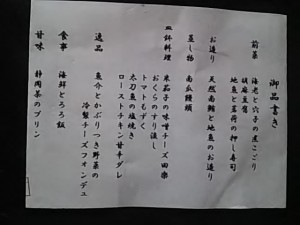 御品書き
前菜 海老と穴子の煮こごり
胡麻豆腐
地魚と茗荷の押し寿司
お造り 天然南鮪と地魚のお造り
蒸し物 南瓜饅頭
皿鉢料理 米茄子の味噌チーズ田楽
おくらのすり流し
トマトもずく
太刀魚の塩焼き
ローストチキン甘辛ダレ
逸品 魚介とかぶりつき野菜の
冷製チーズフォンデュ
食事 海鮮とろろ飯
甘味 静岡茶のプリン